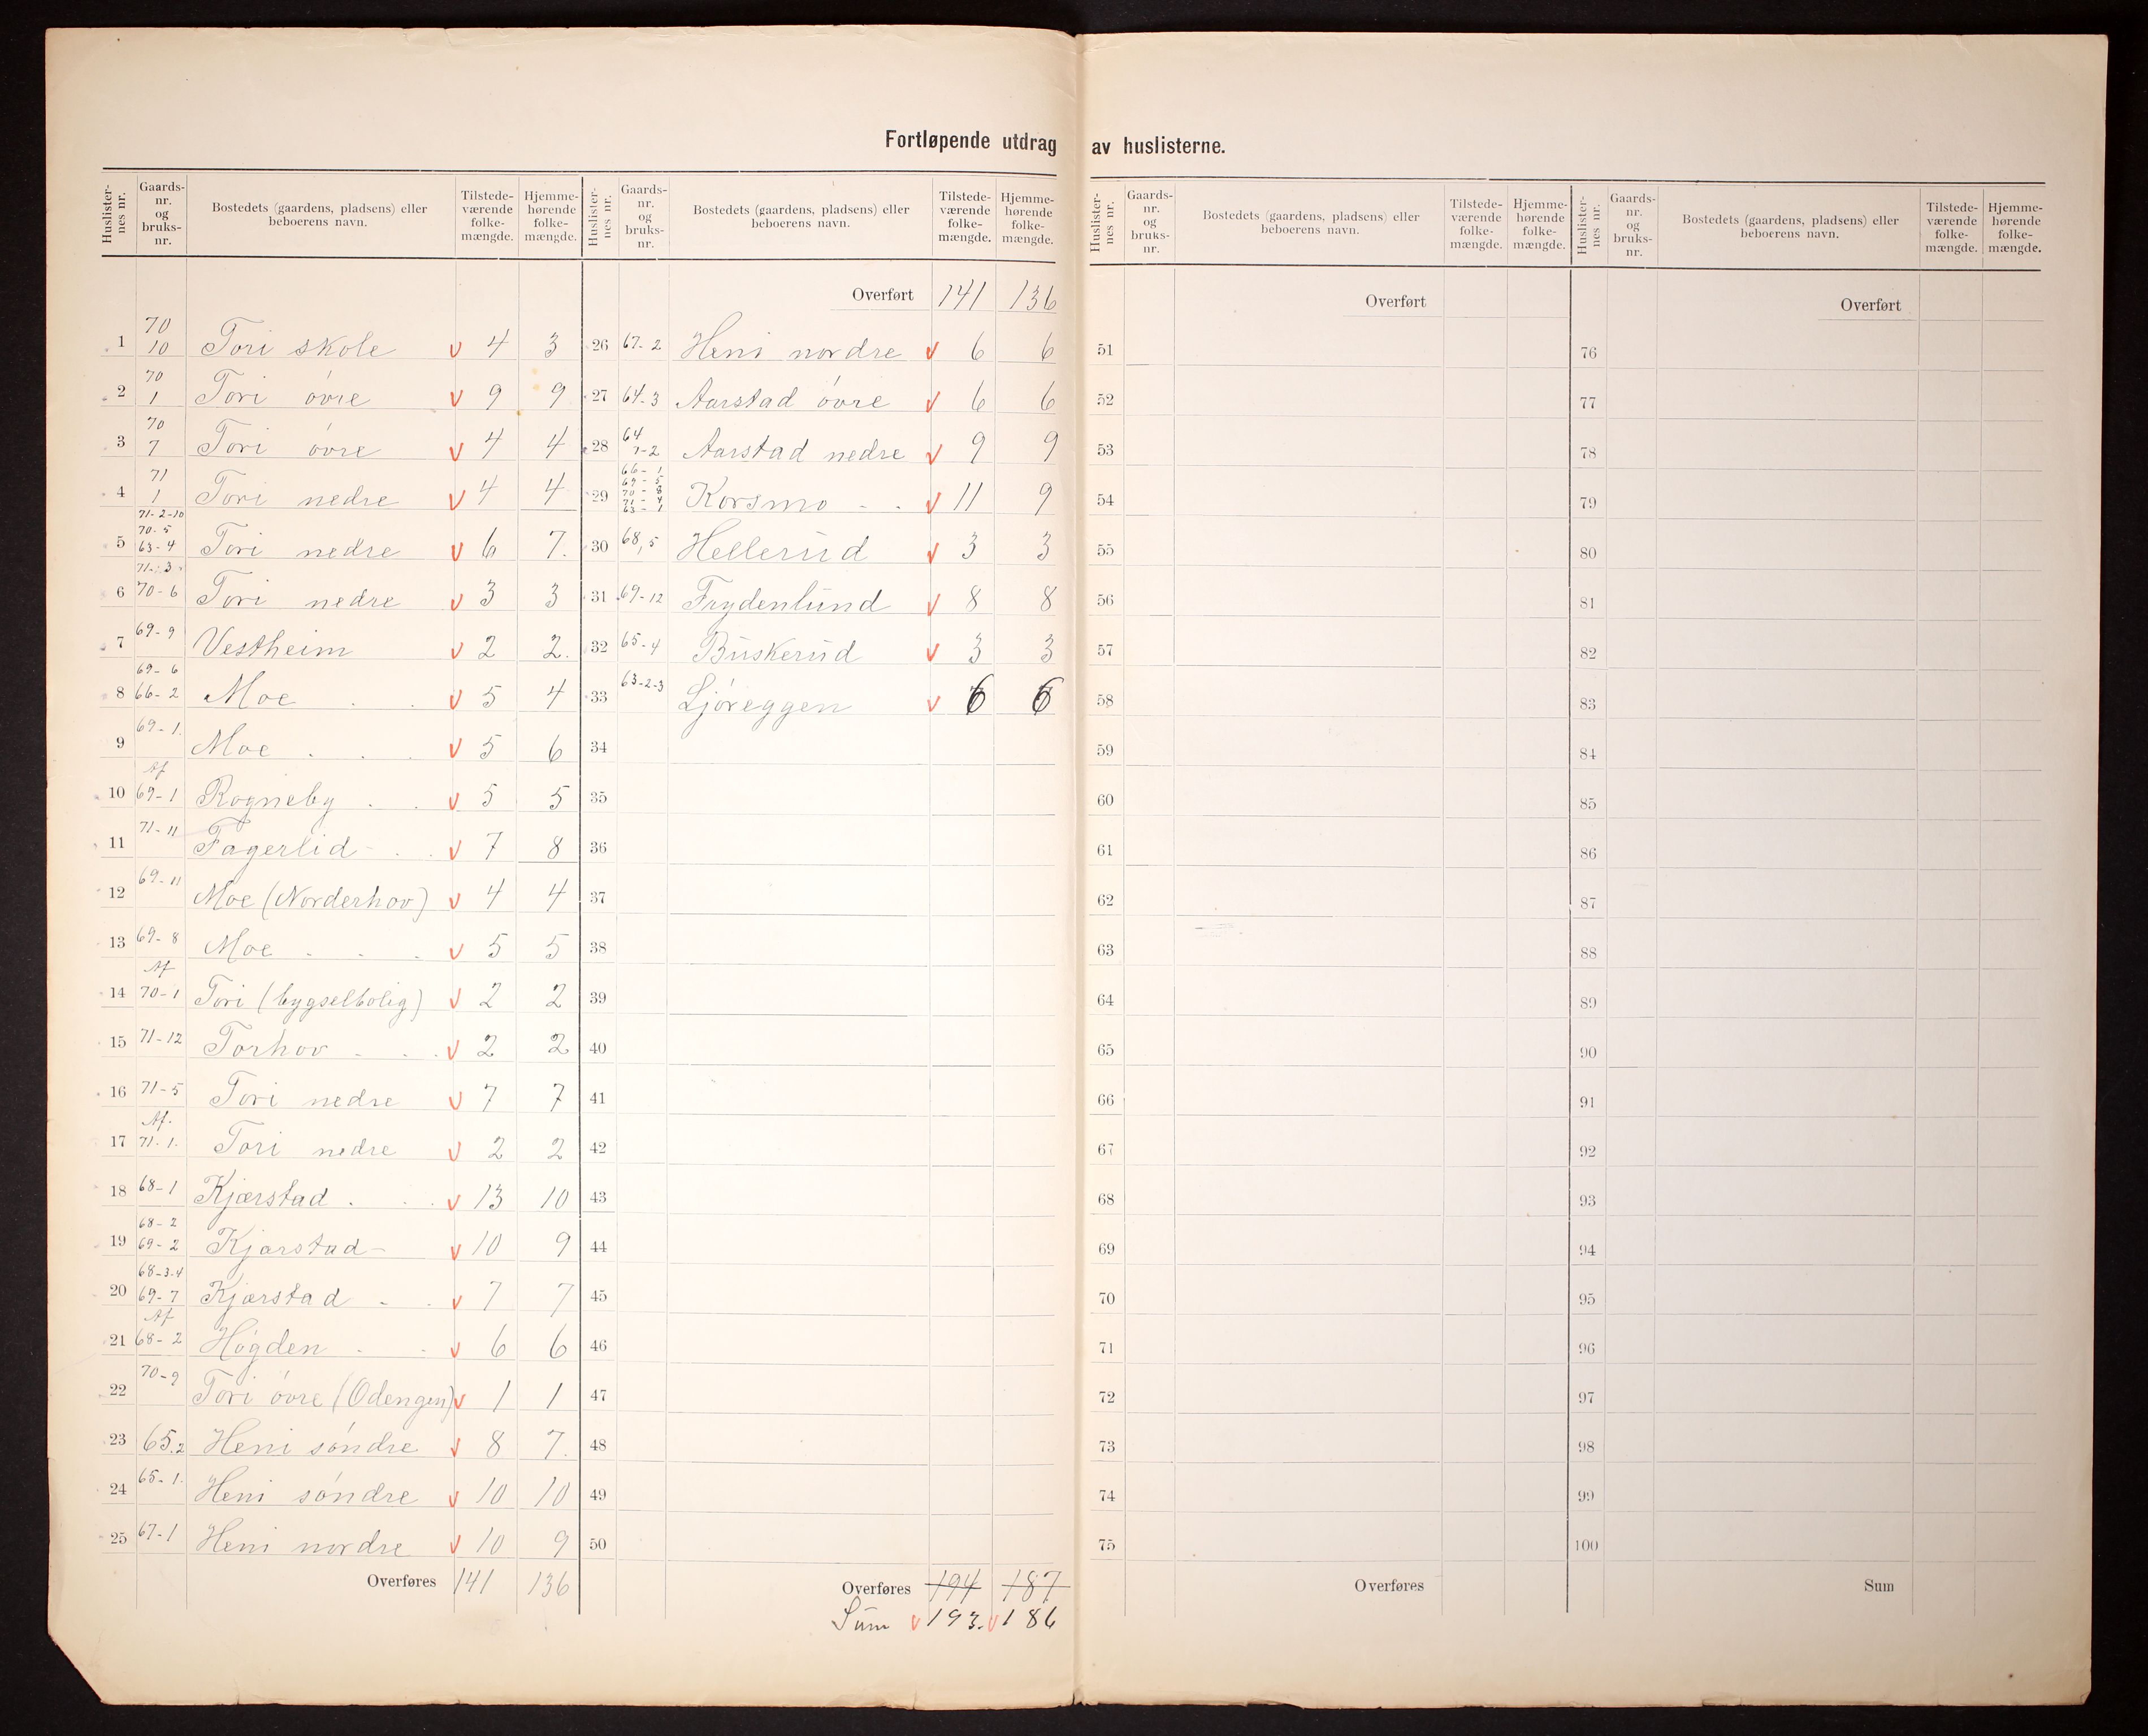 Fortløpende utdrag av huslisterne.
Huslisternes nr. Gaards-nr. og bruks-nr. Bostedets (gaardens, pladsens) eller beboerens navn. Tilstedeværende folkemængde. Hjemmehørende folkemængde.
1 70 10 Tori skole v 4 3
2 70 1 Tori övre v 9 9
3 70 7 Tori övre v 4 4
4 71 1 Tori nedre v 4 4
5 71-2-10 70-5 63-4 Tori nedre v 6 7.
6 71-3 70-6 Tori nedre v 3 3
7 69-9 Vestheim v 2 2.
8 69-6 66-2 Moe . . v 5 4
9 69-1. Moe . . . v 5 6
10 Af 69-1 Rogneby . . v 5 5
11 71-11 Fagerlid - . . v 7 8
12 69-11 Moe (Norderhov) v 4 4
13 69-8 Moe . . . v 5 5
14 Af 70-1 Tori (bygselbolig) v 2 2
15 71-12 Torhov . . . v 2 2
16 71-5 Tori nedre v 7 7
17 Af. 71-1. Tori nedre v 2 2
18 68-1 Kjærstad . . . v 13 10
19 68-2 69-2 Kjærstad - v 10 9
20 68-3-4 69-7 Kjærstad - . v 7 7
21 Af 68-2 Högden . . v 6 6
22 70-9 Tori övre (Odengen) v 1 1
23 65.2 Heni söndre v 8 7.
24 65-1. Heni söndre v 10 10
25 67-1 Heni nordre v 10 9
Overføres 141 136
Huslisternes nr. Gaards-nr. og bruks-nr. Bostedets (gaardens, pladsens) eller beboerens navn. Tilstedeværende folkemængde. Hjemmehørende folkemængde.
Overført 141 136
26 67-2 Heni nordre v 6 6
27 64-3 Aarstad övre v 6 6
28 64 1-2 Aarstad nedre v 9 9
29 66-1 69-5 70-8 71-4 63-1 Korsmo - . v 11 9
30 68,5 Hellerud v 3 3
31 69-12 Frydenlund v 8 8
32 65-4 Buskerud v 3 3
33 63-2-3 Ljöreggen v 6 6
34
35
36
37
38
39
40
41
42
43
44
45
46
47
48
49
50
Overføres 194 187
Sum v 193. v 186
Huslisternes nr. Gaards-nr. og bruks-nr. Bostedets (gaardens, pladsens) eller beboerens navn. Tilstedeværende folkemængde. Hjemmehørende folkemængde.
Overført
51
52
53
54
55
56
57
58
59
60
61
62
63
64
65
66
67
68
69
70
71
72
73
74
75
Overføres
Huslisternes nr. Gaards-nr. og bruks-nr. Bostedets (gaardens, pladsens) eller beboerens navn. Tilstedeværende folkemængde. Hjemmehørende folkemængde.
Overført
76
77
78
79
80
81
82
83
84
85
86
87
88
89
90
91
92
93
94
95
96
97
98
99
100
Sum